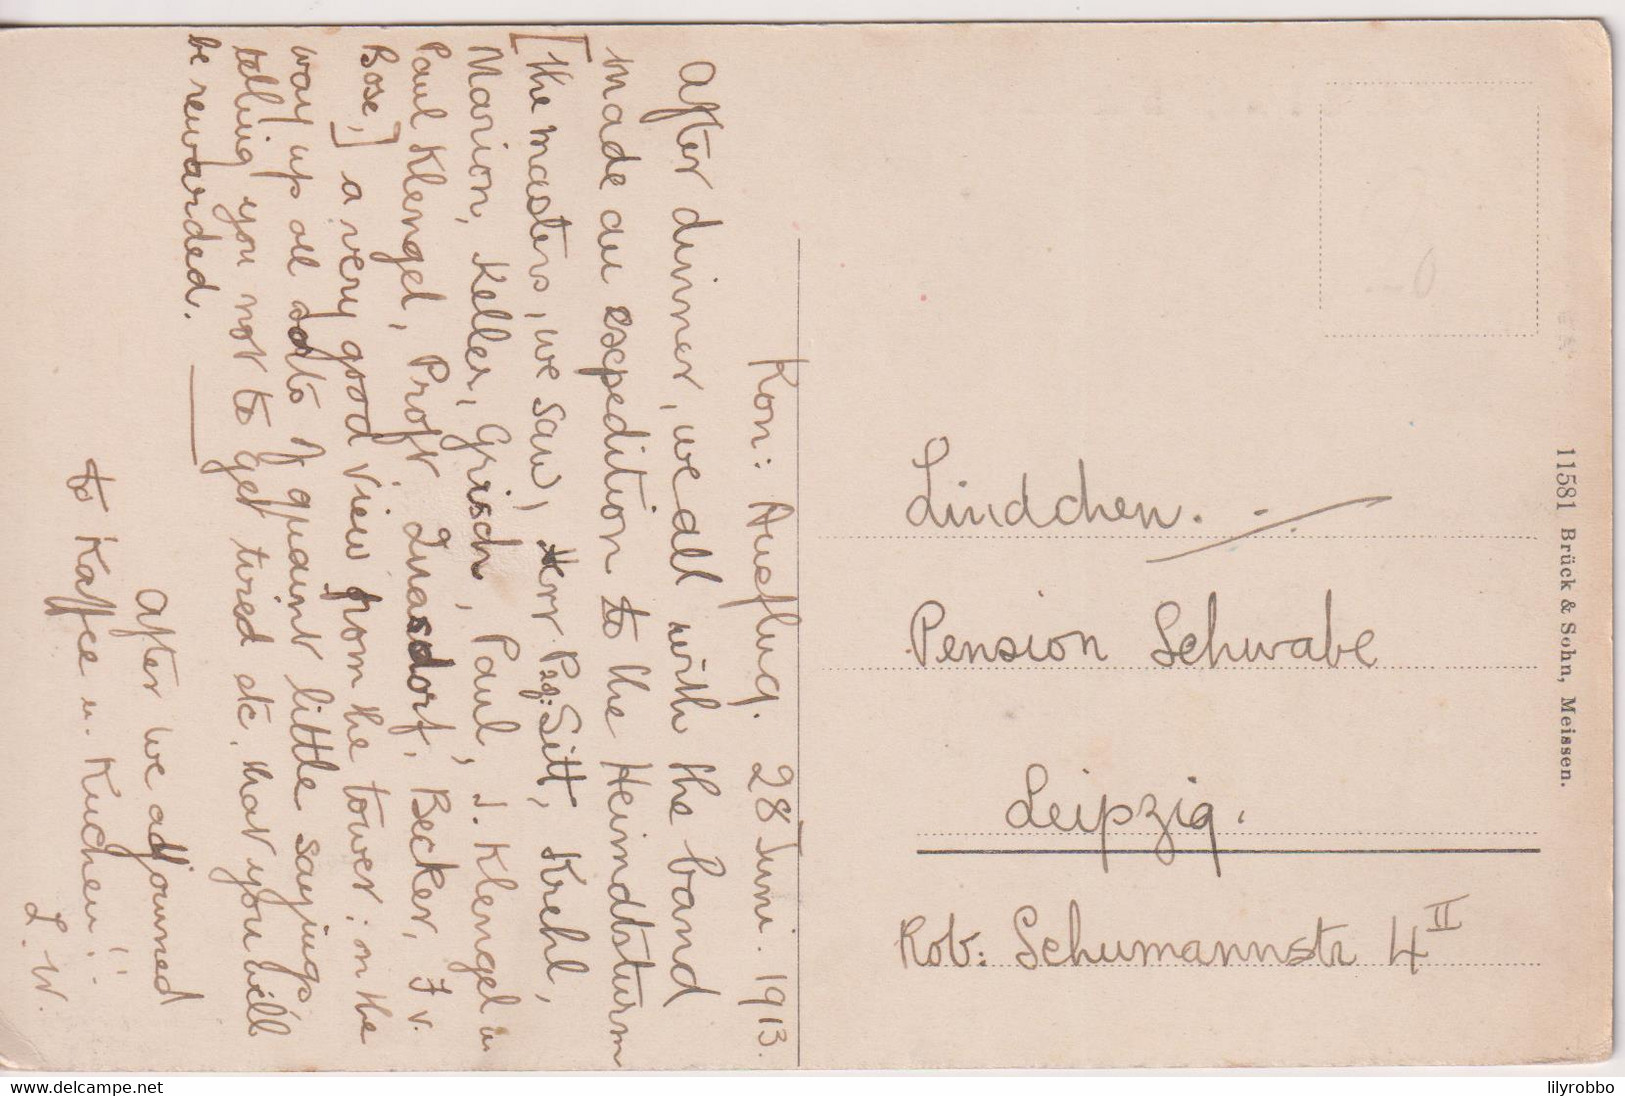 Kon: Ausflug. 28 Juni. 1913.
After dinner, we all with the band
made an expedition to the Heimdtsturm
[the masters, we saw, Herr Paq: Sitt, Krehl,
Marion, Keller, Grisch, Paul, J. Klengel u.
Paul Klengel, Profr Quasdorf, Becker, F v.
Bose,] a very good view from the tower: on the
way up all sorts of quaint little sayings,
telling you not to get tired etc. that you will
be rewarded.
After we adjourned
to Kaffee u. Kuchen!!
L. W.
Lindchen.
Pension Schwabe
Leipzig.
Rob: Schumannstr 4 II
11581 Brück & Sohn, Meissen.
www.delcampe.net
lilyrobbo